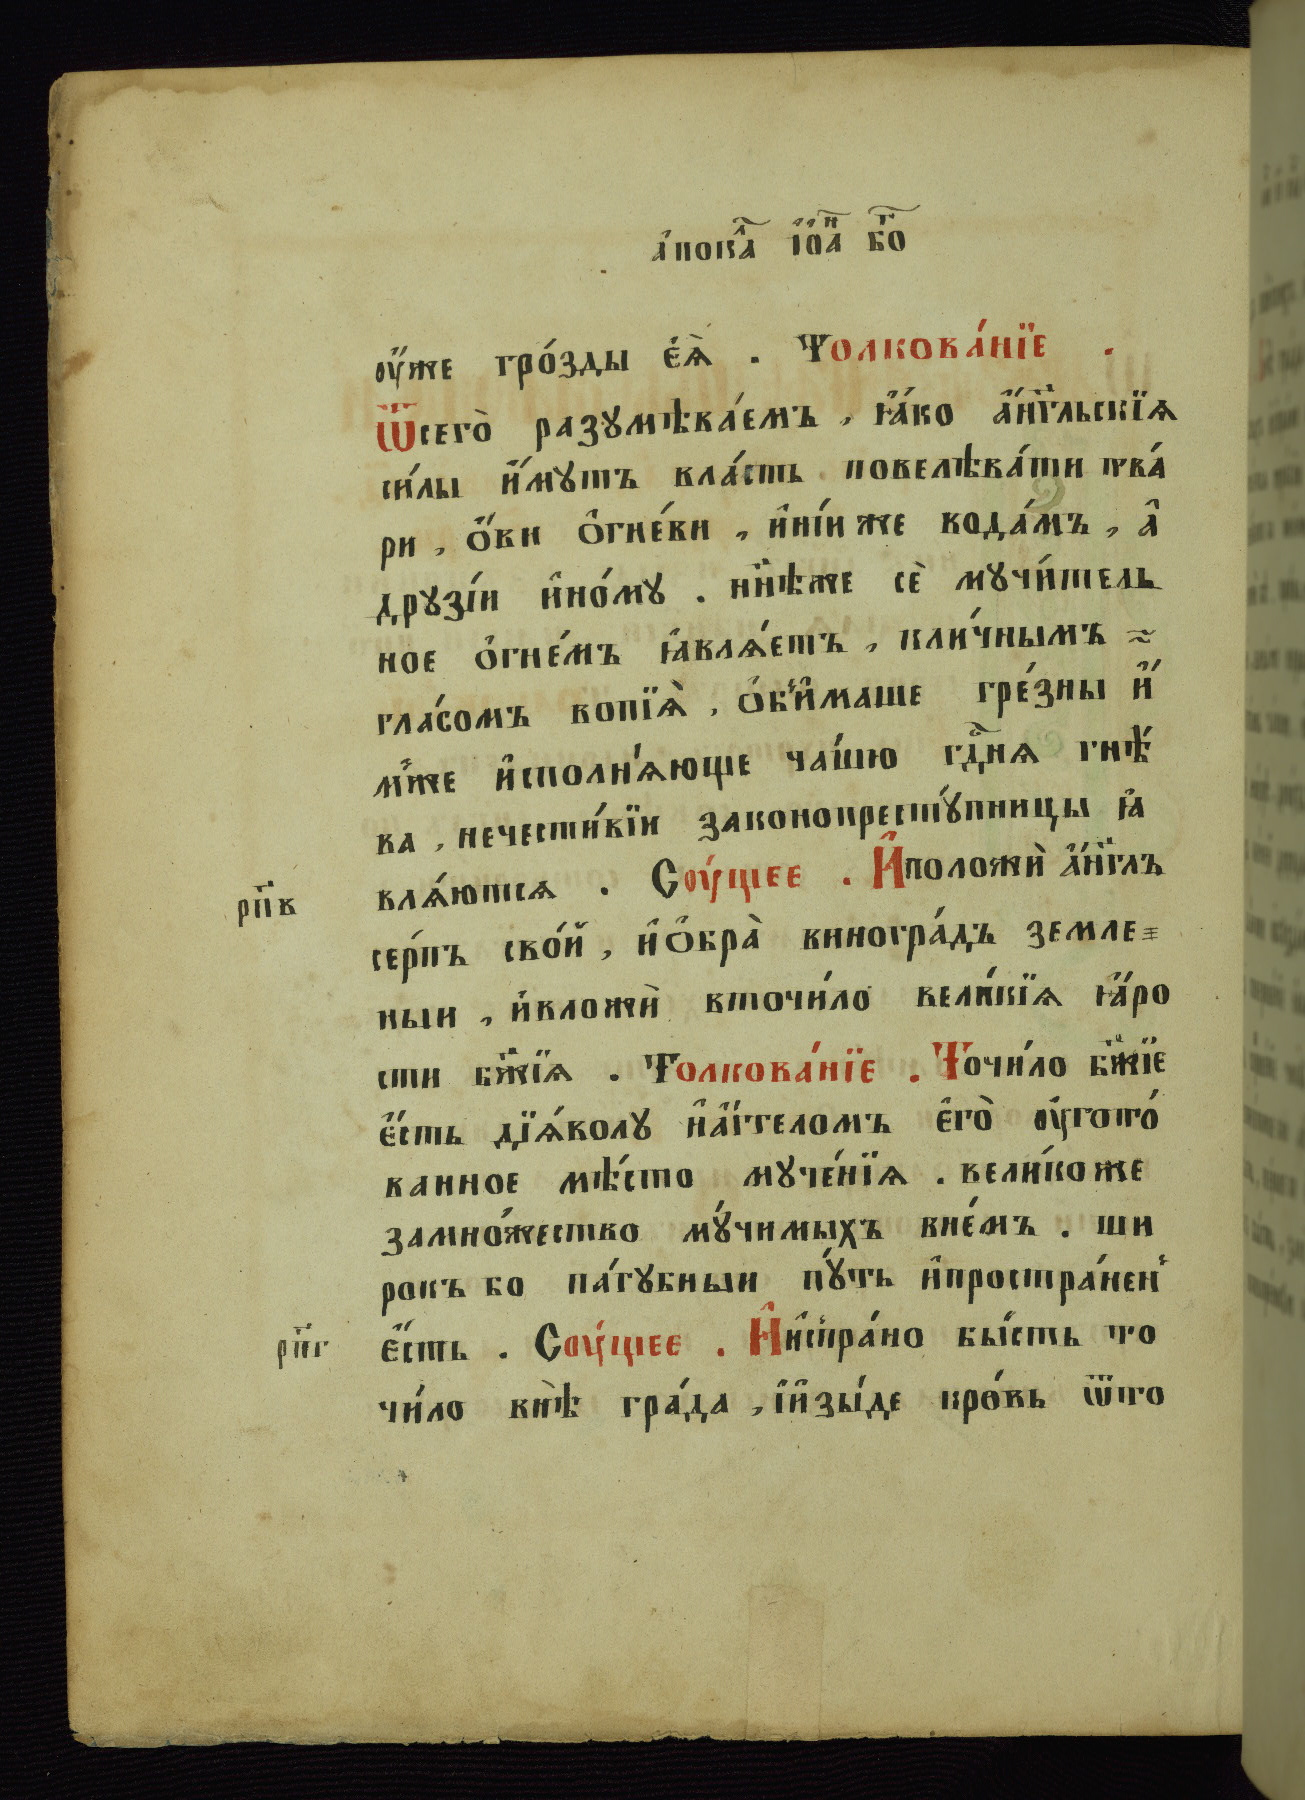 а҆пока́л҇ і҆ѡ҆а́н҇ бг҃о
оу҆́же гро́зды є҆́ѧ̀ . Толкова́нїе .
Ѿсего̀ разꙋмѣва́емъ , ꙗ҆́ко а҆́нг҃льскїѧ
си́лы и҆́мꙋтъ вла́сть повелѣва́ти тва́
ри , ѻ҆́ви ѻ҆гне́ви , и҆ні́и же вода́мъ , а҆
дрꙋзі́и и҆но́мꙋ . нн҃ѣже сѐ мꙋчи́тель
ное ѻ҆гне́мъ ꙗ҆влѧ́етъ , кли́чнымъ
гла́сомъ вопїѧ̀ , ѻ҆б̾и҆маше гре́зны и҆́
м́же и҆сполнѧ́юще ча́шю гдⷭ҇нѧ гнѣ́
ва , нечести́вїи законопрестꙋ́пницы ꙗ҆
рп҃в влѧ́ютсѧ . Соу́щее . И҆положѝ а҆́нг҃лъ
се́рпъ сво́й , и҆ѻ҆бра̀ виногра́дъ земле
ныи , и҆вложѝ вточи́ло вели́кїѧ ꙗ҆́ро
сти бж҃їѧ . Толкова́нїе . Точи́ло бж҃їе
є҆́сть дїѧ́волꙋ и҆а҆́ггеломъ є҆го̀ оу҆гото́
ванное мѣ́сто мꙋче́нїѧ . вели́коже
замно́жество мꙋ́чимыхъ вне́мъ . ши
рокъ бо па́гꙋбныи пꙋ́ть и҆простра́нен̾
рп҃г є҆́сть . Соу́щее . И҆и҆спра́но бы́сть то
чи́ло внѣ̀ гра́да , і҆и҆зы́де кро́вь ѿто